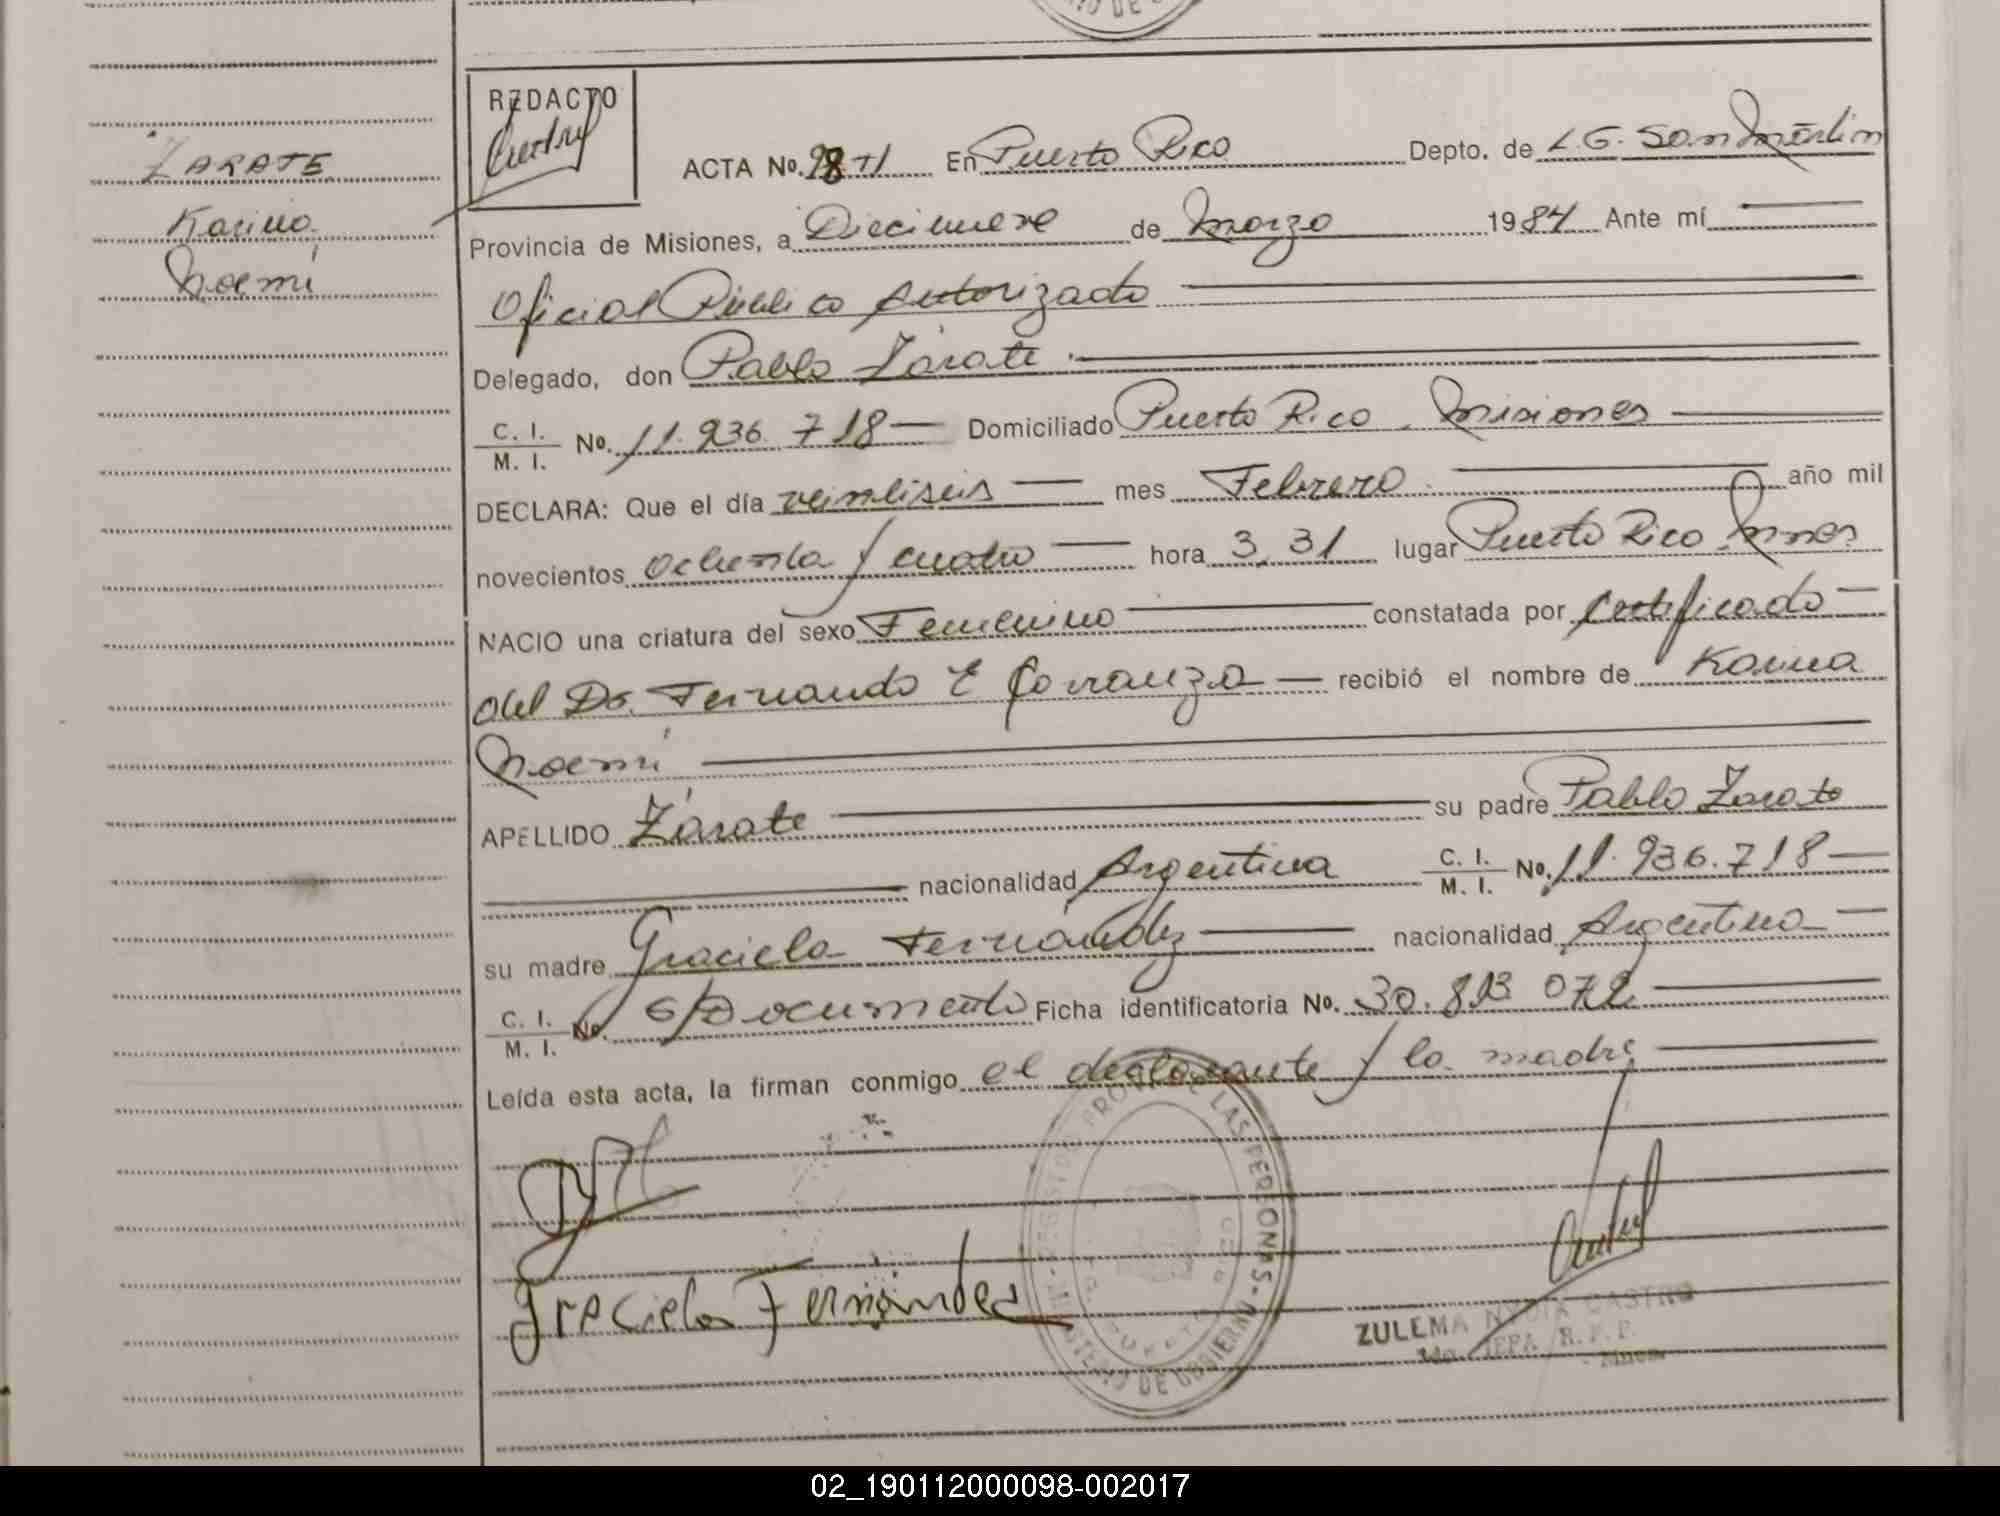 REDACTO
ZARATE
Karina
Noemí
ACTA No. 98 T1 En Puerto Rico Depto. de L.G. San Martin
Provincia de Misiones, a Diecinueve de Marzo 1984 Ante mí
Oficial Público Autorizado
Delegado, don Pablo Zárate
C. I. / M. I. No. 11.936.718 Domiciliado Puerto Rico. Misiones
DECLARA: Que el día veintiseis mes Febrero año mil
novecientos ochenta y cuatro hora 3,31 lugar Puerto Rico Mnes.
NACIO una criatura del sexo Femenino constatada por Certificado
del Dr. Fernando E Carranza recibió el nombre de Karina
Noemí
APELLIDO Zárate su padre Pablo Zarate
nacionalidad Argentina C. I. / M. I. No. 11.936.718
su madre Graciela Fernández nacionalidad Argentina
C. I. / M. I. No. s/Documento Ficha identificatoria No. 30.813 072
Leída esta acta, la firman conmigo el declarante y la madre
Graciela Fernandez
REGISTRO PROV. DE LAS PERSONAS
MINISTERIO DE GOBIERNO
PUERTO RICO
ZULEMA NYDIA CASTRO
JEFA R. P. P.
02_190112000098-002017